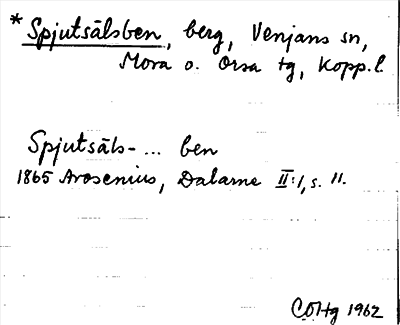 * Spjutsälsben, berg, Venjans sn,
Mora o. Orsa tg, Kopp. l.
Spjutsäls- ... ben
1865 Arosenius, Dalarne II:1, s. 11.
COHg 1962